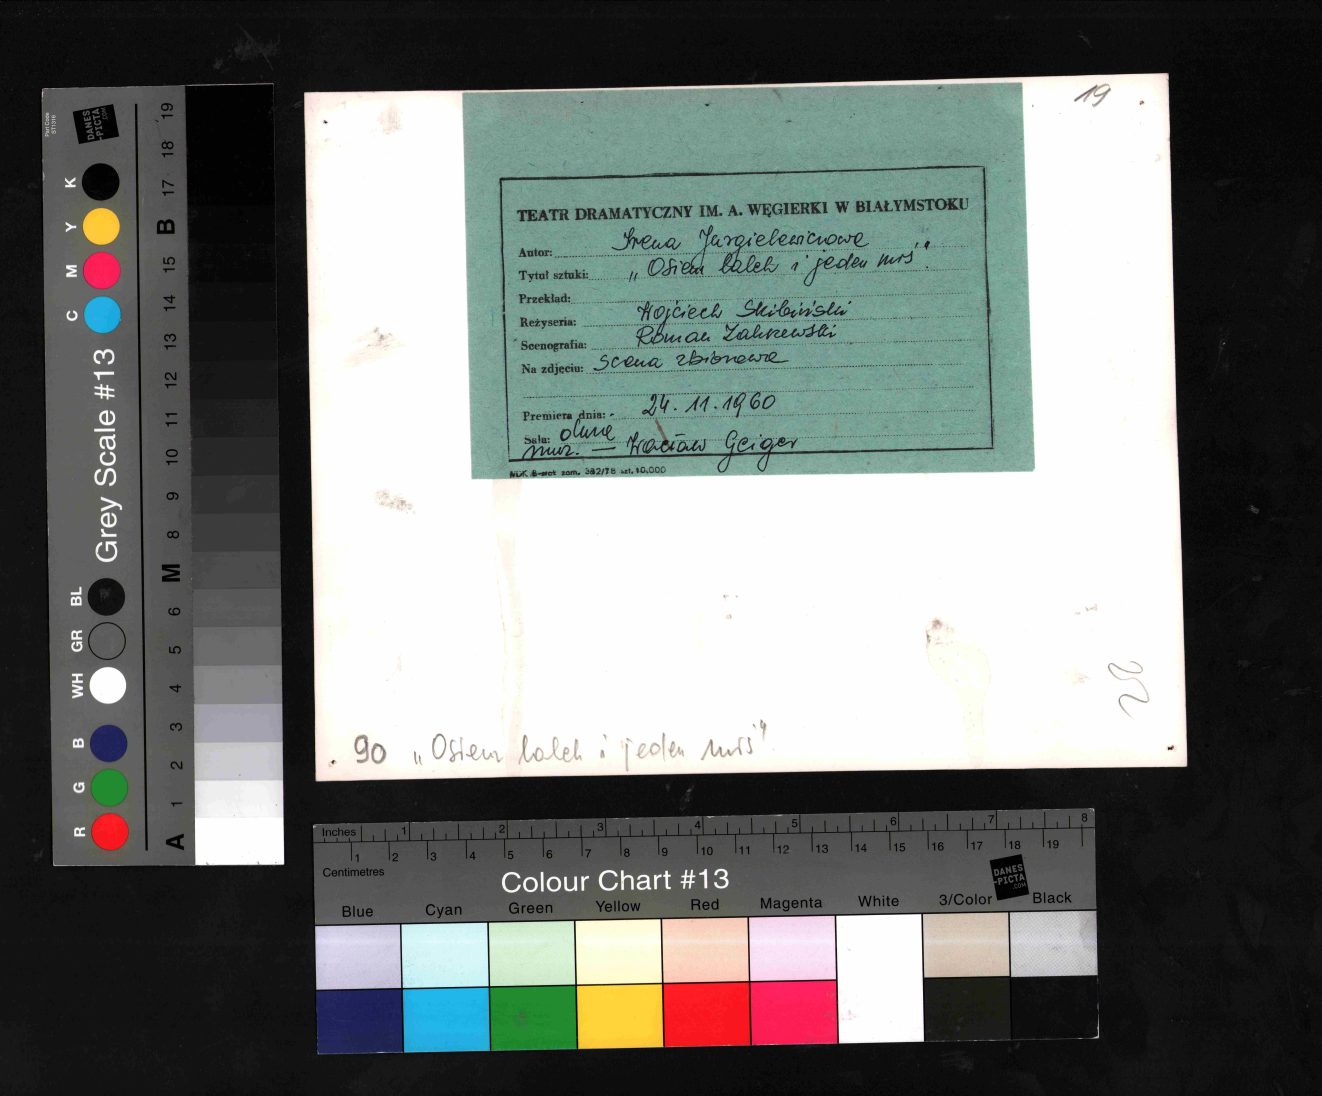 19
TEATR DRAMATYCZNY IM. A. WĘGIERKI W BIAŁYMSTOKU
Autor: Irena Jurgielewiczowa
Tytuł sztuki: „Osiem lalek i jeden miś”
Przekład:
Reżyseria: Wojciech Skibiński
Scenografia:
Roman Zakrzewski
Na zdjęciu: scena zbiorowa
Premiera dnia: 24. 11. 1960
Sala:
muz. — Wacław Geiger
zam. 382/78 10.000
90 „Osiem lalek i jeden miś”
Part Code
ST1316
DANES
-PICTA
.COM
K Y M C
Grey Scale #13
BL GR WH B G R
19 18 17 B 15 14 13 12 11 10 9 8 M 6 5 4 3 2 1 A
Inches 1 2 3 4 5 6 7 8
1 2 3 4 5 6 7 8 9 10 11 12 13 14 15 16 17 18 19
Centimetres
Colour Chart #13
DANES
-PICTA
.COM
Blue Cyan Green Yellow Red Magenta White 3/Color Black